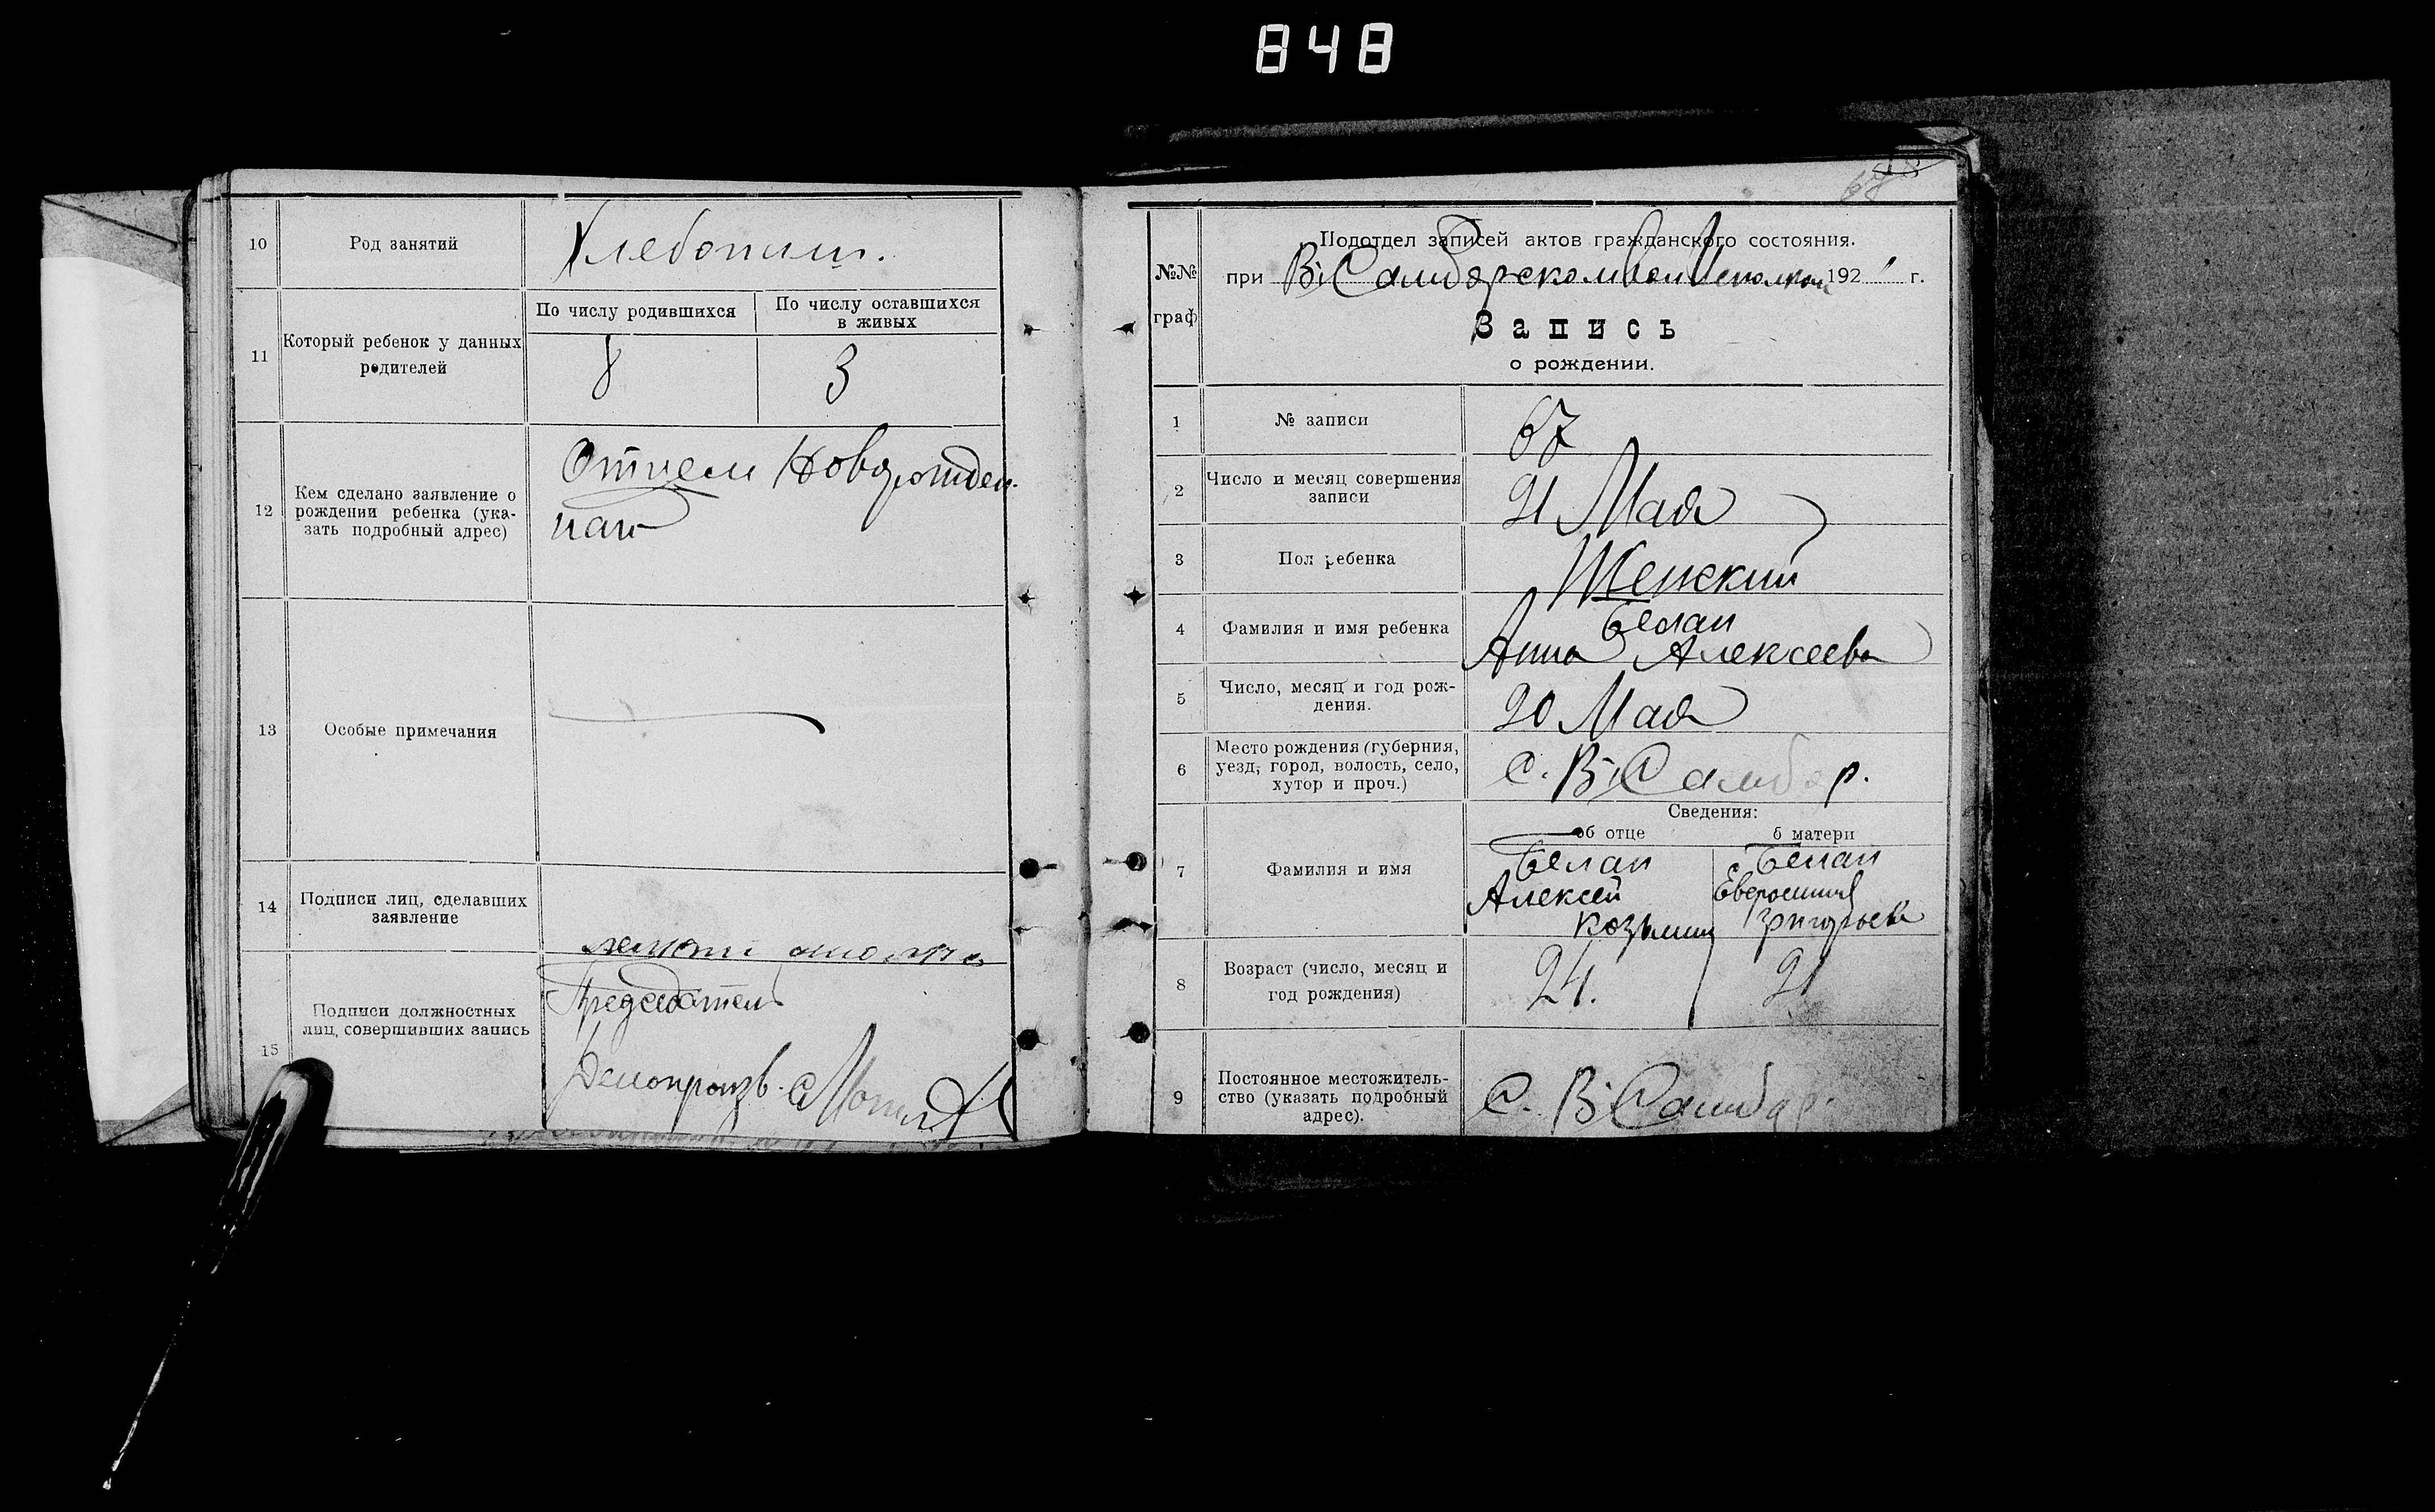 848
10 Род занятий Хлебопаш.
11 Который ребенок у данных родителей
По числу родившихся
По числу оставшихся в живых
8 3
12 Кем сделано заявление о рождении ребенка (ука-
зать подробный адрес)
Отцем Новорожден-
13 Особые примечания
14 Подписи лиц, сделавших
заявление
15 Подписи должностных
лиц, совершивших запись
Председатель
Делопроизв.
№№ граф
Подотдел записей актов гражданского состояния.
при В. Самборском Вол Исполком 1921 г.
Запись
о рождении.
1 № записи 67
2 Число и месяц совершения
записи
21 Мая
3 Пол ребенка Женский
4 Фамилия и имя ребенка
Белан
Анна Алексеева
5 Число, месяц и год рож-
дения.
20 Мая
6 Место рождения (губерния,
уезд, город, волость, село,
хутор и проч.)
С. В. Самбор.
Сведения:
об отце б матери
7 Фамилия и имя
Белан Белан
Алексей
Козьмин Григорьев
8 Возраст (число, месяц и
год рождения)
24. 21
9 Постоянное местожитель-
ство (указать подробный
адрес).
С. В. Самбор.